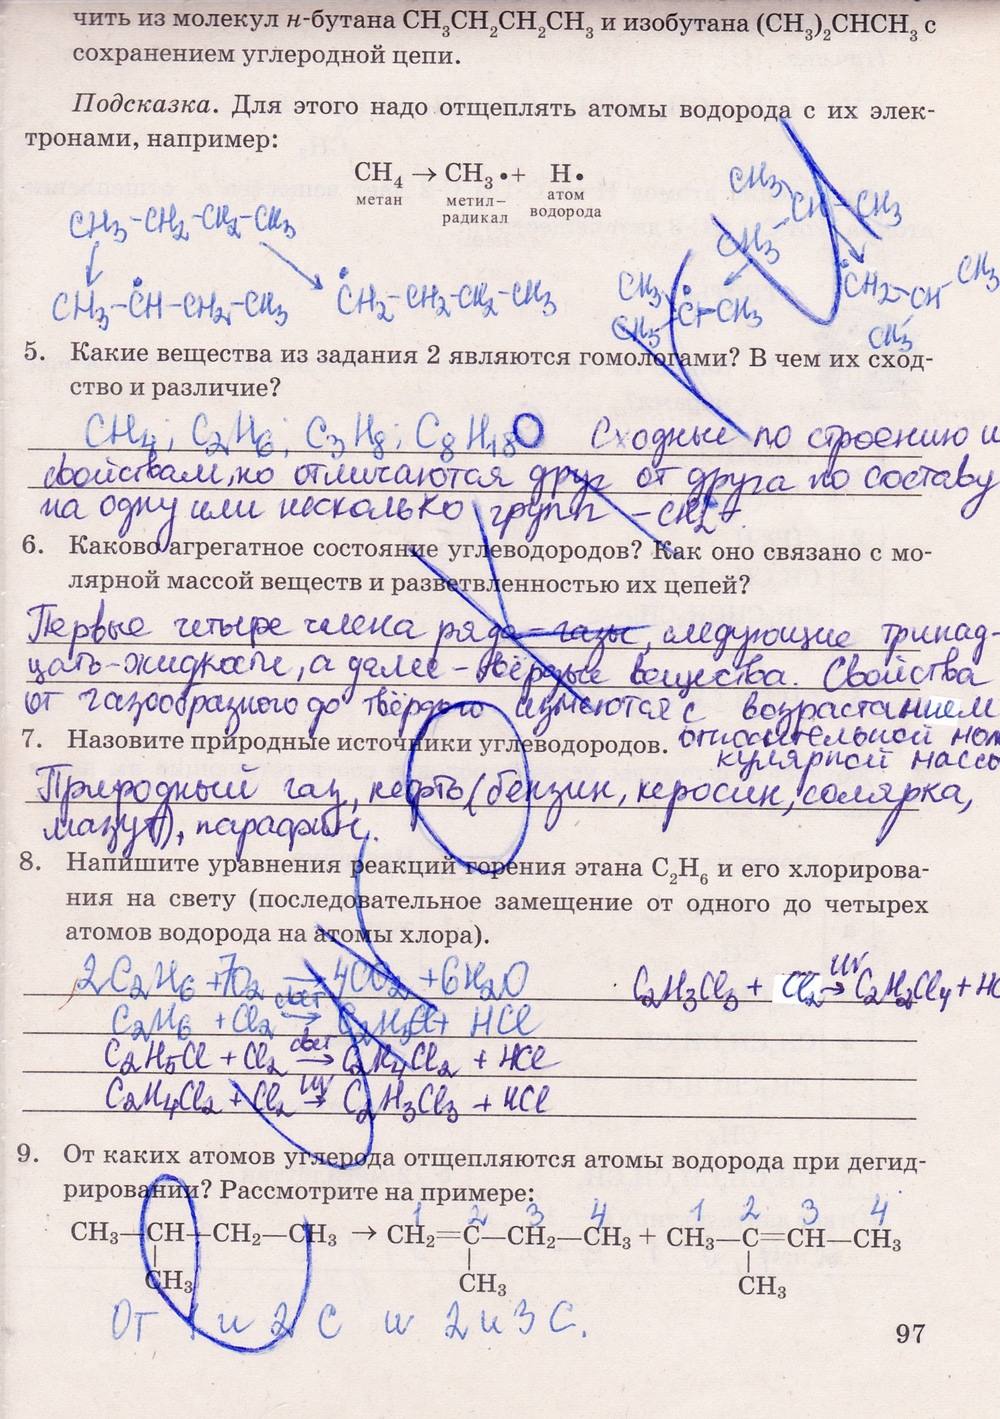 чить из молекул н-бутана CH₃CH₂CH₂CH₃ и изобутана (CH₃)₂CHCH₃ с
сохранением углеродной цепи.
Подсказка. Для этого надо отщеплять атомы водорода с их элек-
тронами, например:
CH₄ → CH₃• + H•
метан метил-радикал атом водорода
CH₃-CH₂-CH₂-CH₃
CH₃ CH-CH₃
CH₃
CH₃-ĊH-CH₂-CH₃ ĊH₂-CH₂-CH₂-CH₃
CH₃ Ċ-CH₃
CH₃
ĊH₂-CH CH₃
CH₃
5. Какие вещества из задания 2 являются гомологами? В чем их сход-
ство и различие?
CH₄; C₂H₆; C₃H₈; C₈H₁₈ Сходные по строению и
свойствам, но отличаются друг от друга по составу
на одну или несколько групп -CH₂-.
6. Каково агрегатное состояние углеводородов? Как оно связано с мо-
лярной массой веществ и разветвленностью их цепей?
Первые четыре члена ряда - газы, следующие тринад-
цать-жидкости, а далее - твёрдые вещества. Свойства
от газообразного до твёрдого изменяются с возрастанием
относительной мол
7. Назовите природные источники углеводородов.
кулярной массы
Природный газ, нефть (бензин, керосин, солярка,
мазут), парафин.
8. Напишите уравнения реакций горения этана C₂H₆ и его хлорирова-
ния на свету (последовательное замещение от одного до четырех
атомов водорода на атомы хлора).
2C₂H₆ + 7O₂ → 4CO₂ + 6H₂O
C₂H₃Cl₃ + Cl₂ UV→ C₂H₂Cl₄ + HC
C₂H₆ + Cl₂ свет→ C₂H₅Cl + HCl
C₂H₅Cl + Cl₂ свет→ C₂H₄Cl₂ + HCl
C₂H₄Cl₂ + Cl₂ UV→ C₂H₃Cl₃ + HCl
9. От каких атомов углерода отщепляются атомы водорода при дегид-
рировании? Рассмотрите на примере:
1 2 3 4 1 2 3 4
CH₃—CH—CH₂—CH₃ → CH₂=C—CH₂—CH₃ + CH₃—C=CH—CH₃
CH₃ CH₃ CH₃
От 1 и 2 С и 2 и 3 С.
97